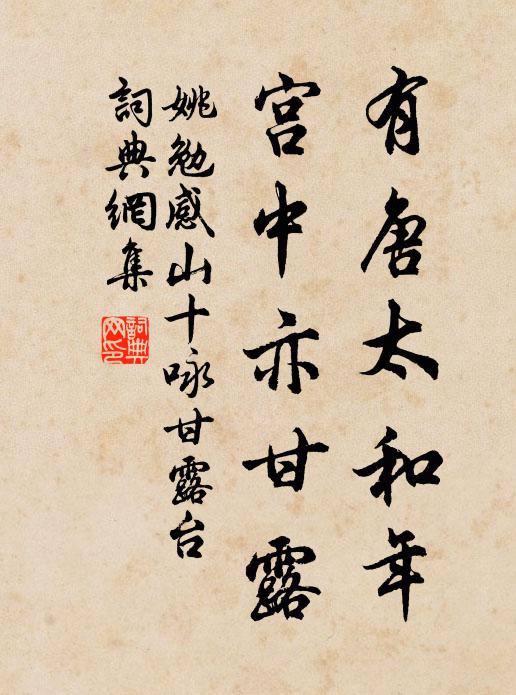 有唐太和年
宫中亦甘露
姚勉感山十咏甘露台
詞典網集
詞典網印